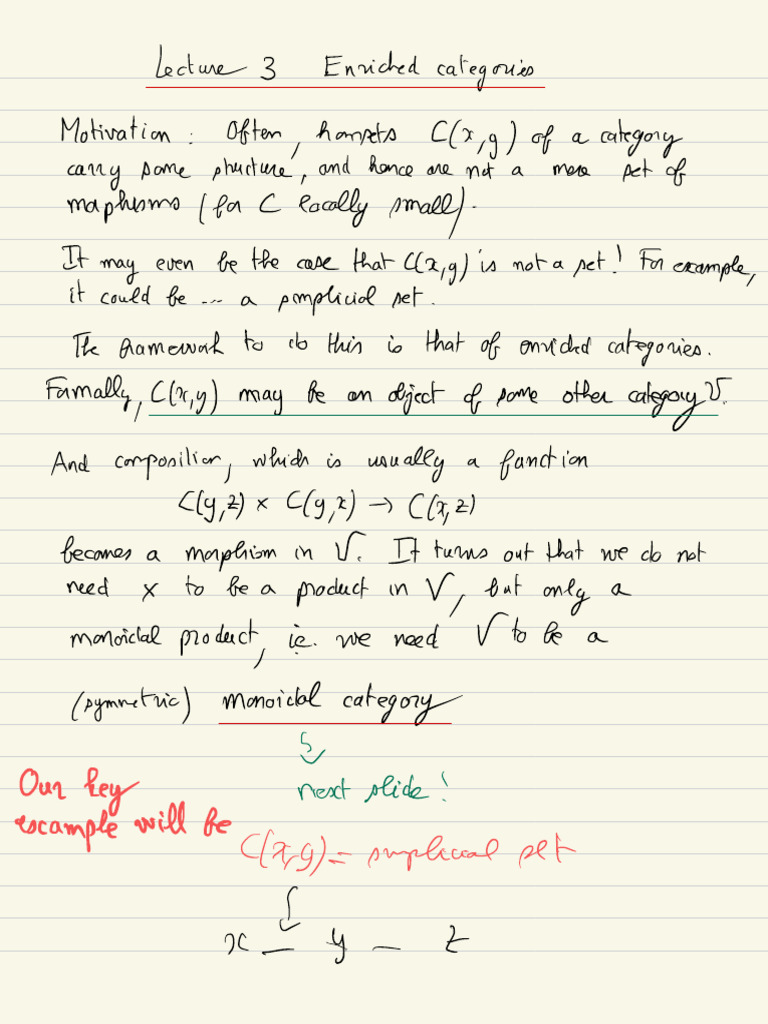 Lecture 3 Enriched categories
Motivation: Often, homsets C(x,y) of a category
carry some structure, and hence are not a mere set of
morphisms (for C locally small).
It may even be the case that C(x,y) is not a set! For example,
it could be ... a simplicial set.
The framework to do this is that of enriched categories.
Formally, C(x,y) may be an object of some other category V.
And composition, which is usually a function
C(y,z) × C(y,x) → C(x,z)
becomes a morphism in V. It turns out that we do not
need × to be a product in V, but only a
monoidal product, i.e. we need V to be a
(symmetric) monoidal category
next slide!
Our key
example will be
C(x,y) = simplicial set
x — y — z